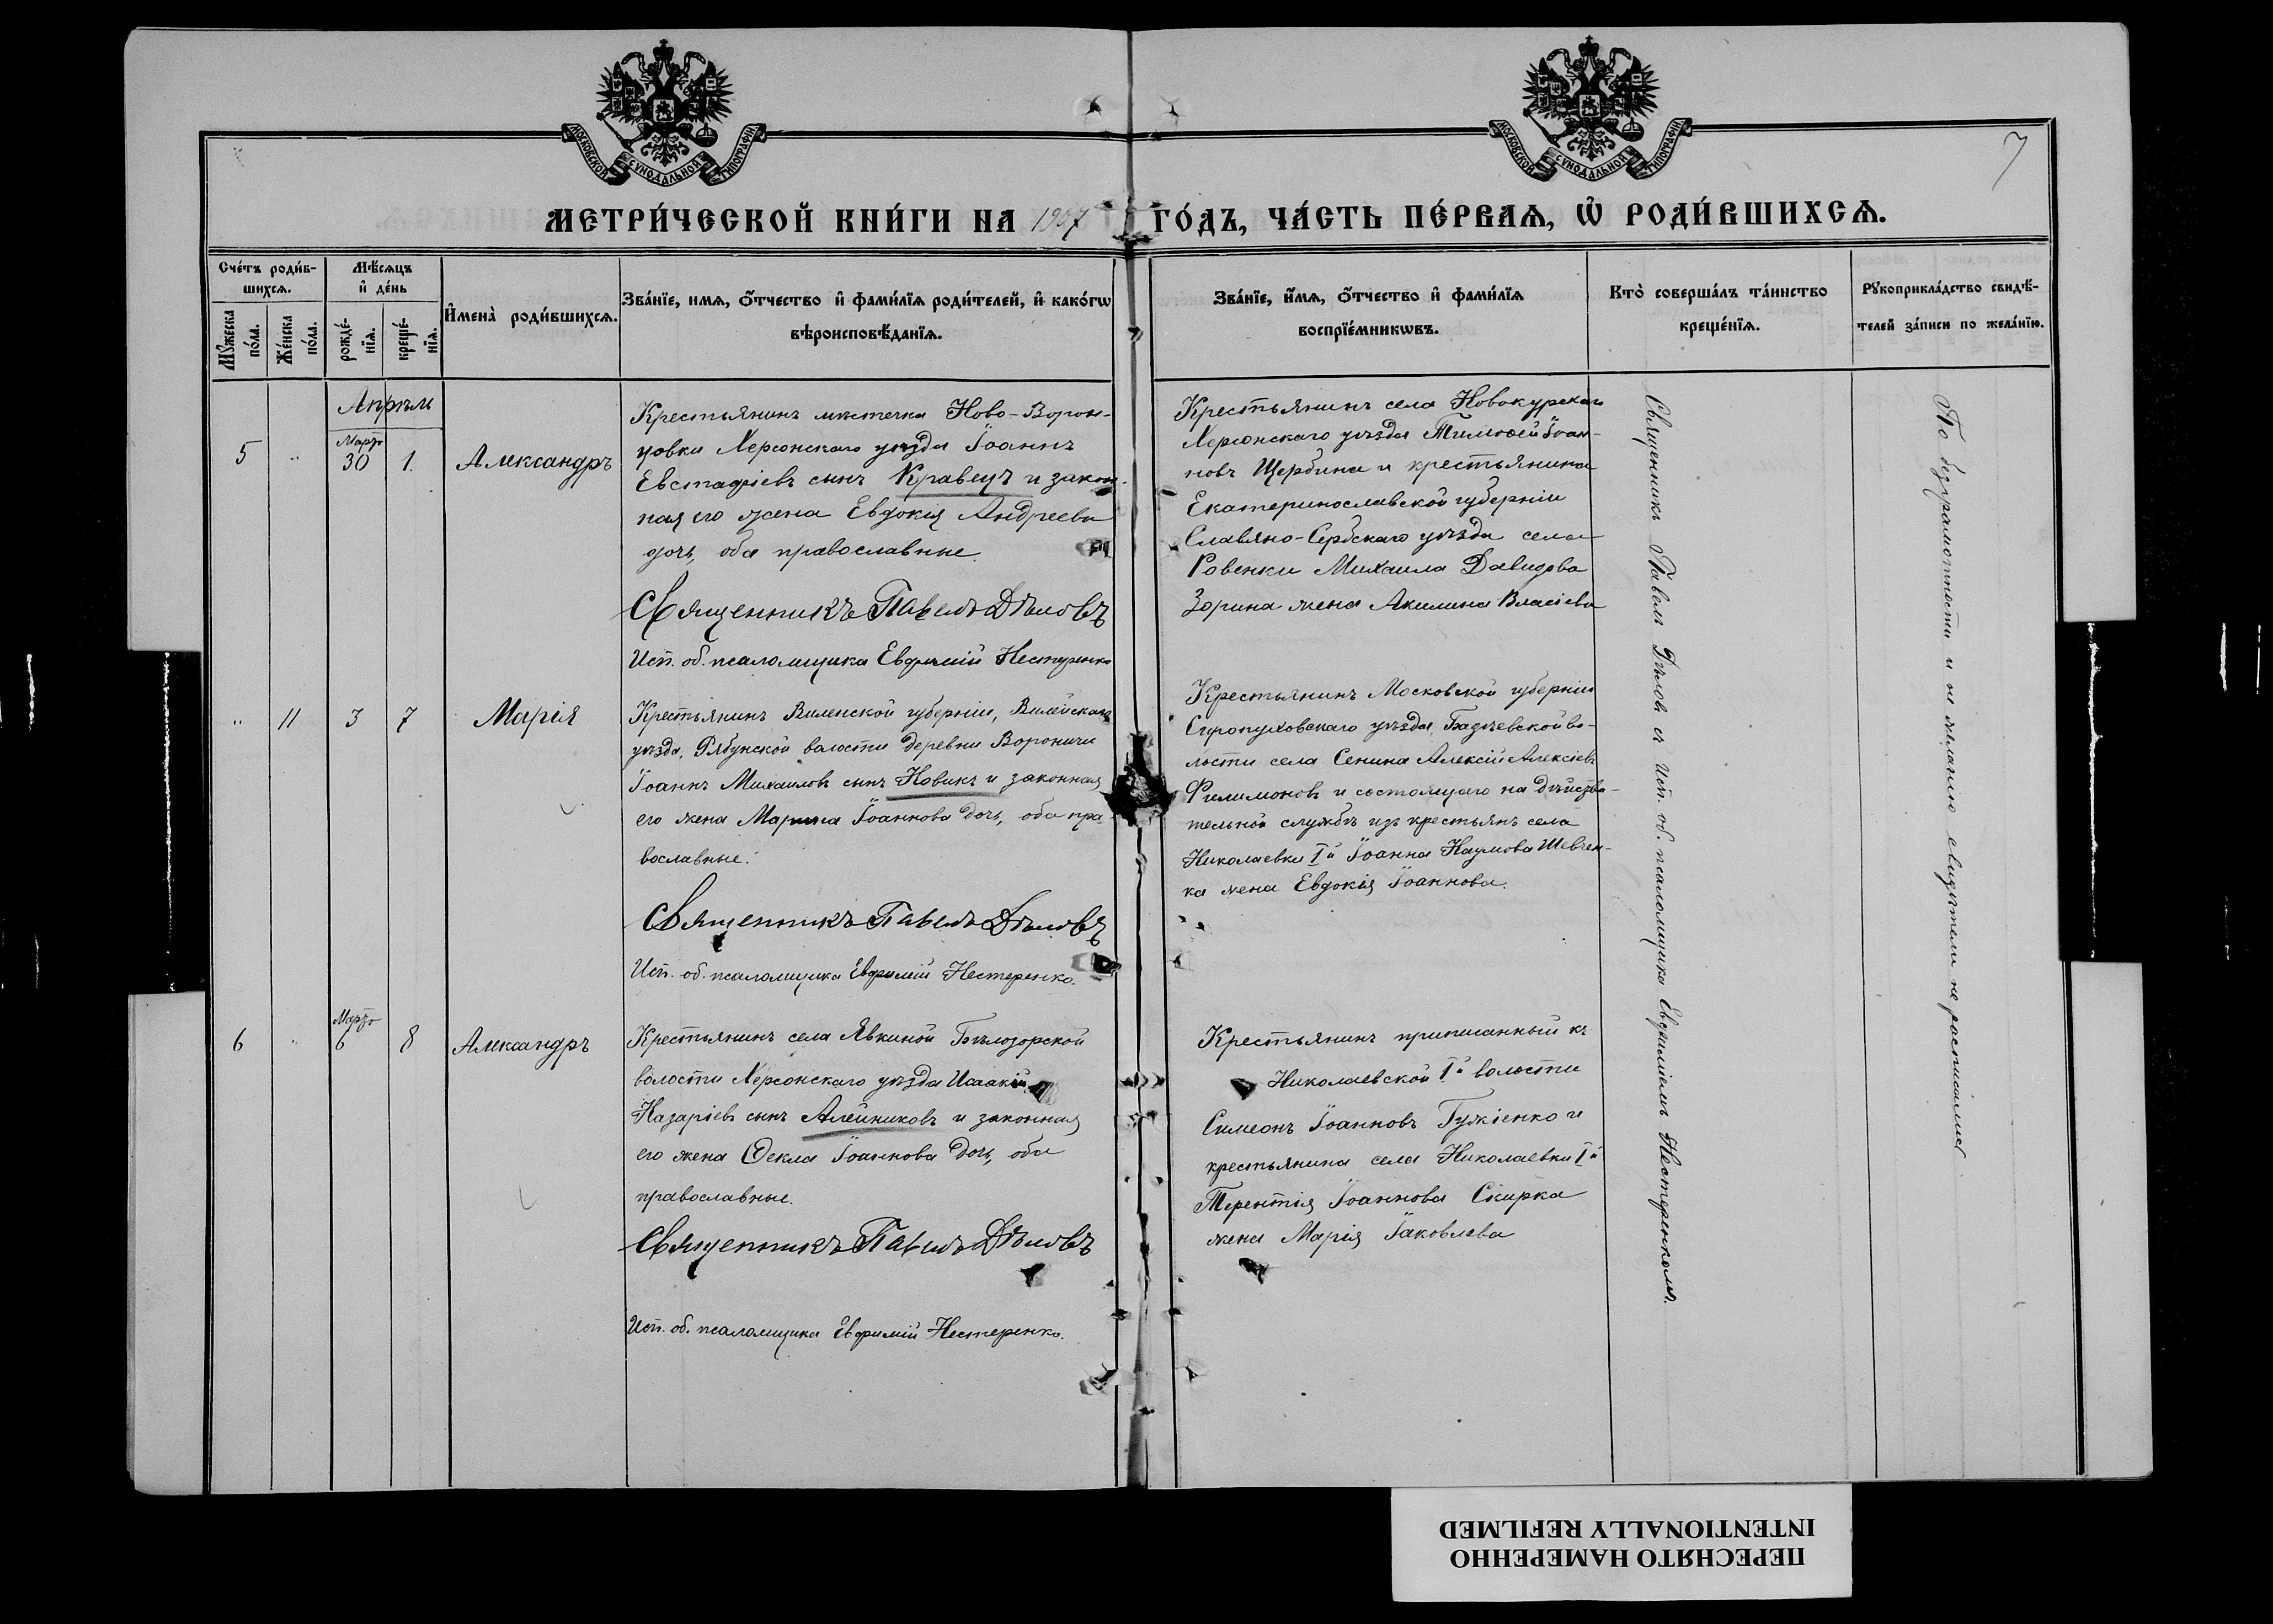 МОСКОВСКОЙ СѴНОДАЛЬНОЙ ТИПОГРАФІИ
МОСКОВСКОЙ СѴНОДАЛЬНОЙ ТИПОГРАФІИ
7
МЕТРИ́ЧЕСКОЙ КНИ́ГИ НА 1907 ГО́ДЪ, ЧА́СТЬ ПЕ́РВАѦ, Ѡ҆ РОДИ́ВШИХСѦ.
Сче́тъ роди́в-
шихсѧ.
Мꙋ́жеска по́ла.
Же́нска по́ла.
Мѣ́сѧцъ
и҆ де́нь
рожде́-
нїѧ.
креще́-
нїѧ.
И҆мена̀ роди́вшихсѧ.
Зва́нїе, имѧ, о҆́тчество и҆ фами́лїѧ роди́телей, и҆ како́гѡ
вѣроисповѣ́данїѧ.
Зва́нїе, и҆́мѧ, о҆́тчество и҆ фами́лїѧ
воспрїе́мникѡвъ.
Кто̀ соверша́лъ та́инство
креще́нїѧ.
Рꙋкоприкла́дство свидѣ́-
телей за́писи по жела́нїю.
Апрѣль
5 " Мартъ 30 1. Александръ
Крестьянинъ мѣстечка Ново-Ворон-
цовки Херсонскаго уѣзда Іоаннъ
Евстафіевъ сынъ Кравецъ и закон-
ная его жена Евдокія Андреева
дочь, оба православные.
Священникъ Павелъ Дѣловъ
Исп. об. псаломщика Евфимій Нестеренко
Крестьянинъ села Новокурскаго
Херсонскаго уѣзда Тимоѳей Іоан-
новъ Щербина и крестьянина
Екатеринославской губерніи
Славяно-Сербскаго уѣзда села
Ровенки Михаила Давидова
Зорина жена Акилина Власіева
" 11 3 7 Марія
Крестьянинъ Виленской губерніи, Вилейскаго
уѣзда, волости деревни Вороничи
Іоаннъ Михаиловъ сынъ Новикъ и законная
его жена Марина Іоаннова дочь, оба пра-
вославные.
Священникъ Павелъ Дѣловъ
Исп. об. псаломщика Евфимій Нестеренко.
Крестьянинъ Московской губерніи
Серпуховскаго уѣзда, во-
лости села Сенина Алексій Алексіевъ
Филимоновъ и состоящаго на дѣйстви-
тельной службѣ изъ крестьянъ села
Николаевки Iй Іоанна Наумова Шевчен-
ка жена Евдокія Іоаннова.
6 " Мартъ 6 8 Александръ
Крестьянинъ села Явкиной Бѣлозорской
волости Херсонскаго уѣзда Исаакій
Назаріевъ сынъ Алейниковъ и законная
его жена Ѳекла Іоаннова дочь, оба
православные.
Священникъ Павелъ Дѣловъ
Исп. об. псаломщика Евфимій Нестеренко.
Крестьянинъ приписанный къ
Николаевской Iй волости
Симеонъ Іоанновъ Гужіенко и
крестьянина села Николаевки Iй
Терентія Іоаннова Скирка
жена Марія Іаковлева
Священникъ Павелъ Дѣловъ съ исп. об. псаломщика Евфиміемъ Нестеренкомъ.
По безграмотности и не желанію свидѣтели не расписались
ПЕРЕСНЯТО НАМЕРЕННО
INTENTIONALLY REFILMED